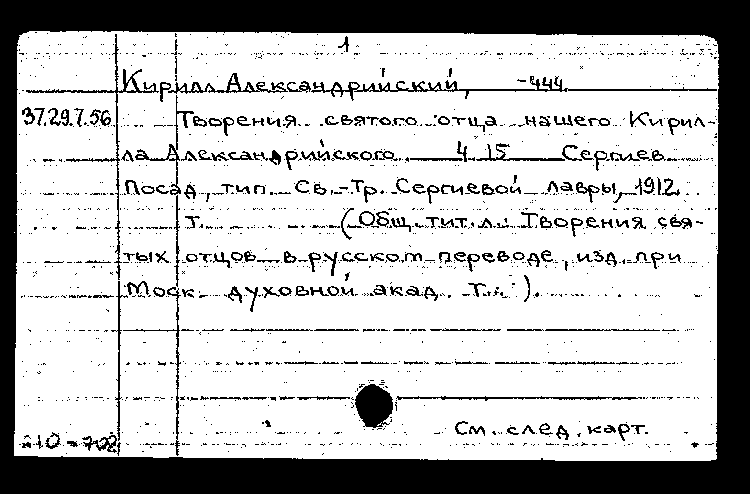 1
Кирилл Александрийский, -444.
37.29.7.56 Творения святого отца нашего Кирил-
ла Александрийского. Ч. 15 Сергиев
Посад, тип. Св.-Тр. Сергиевой лавры, 1912.
Т. (Общ. тит. л.: Творения свя-
тых отцов в русском переводе, изд. при
Моск. духовной акад. Т... ).
См. след. карт.
210-702